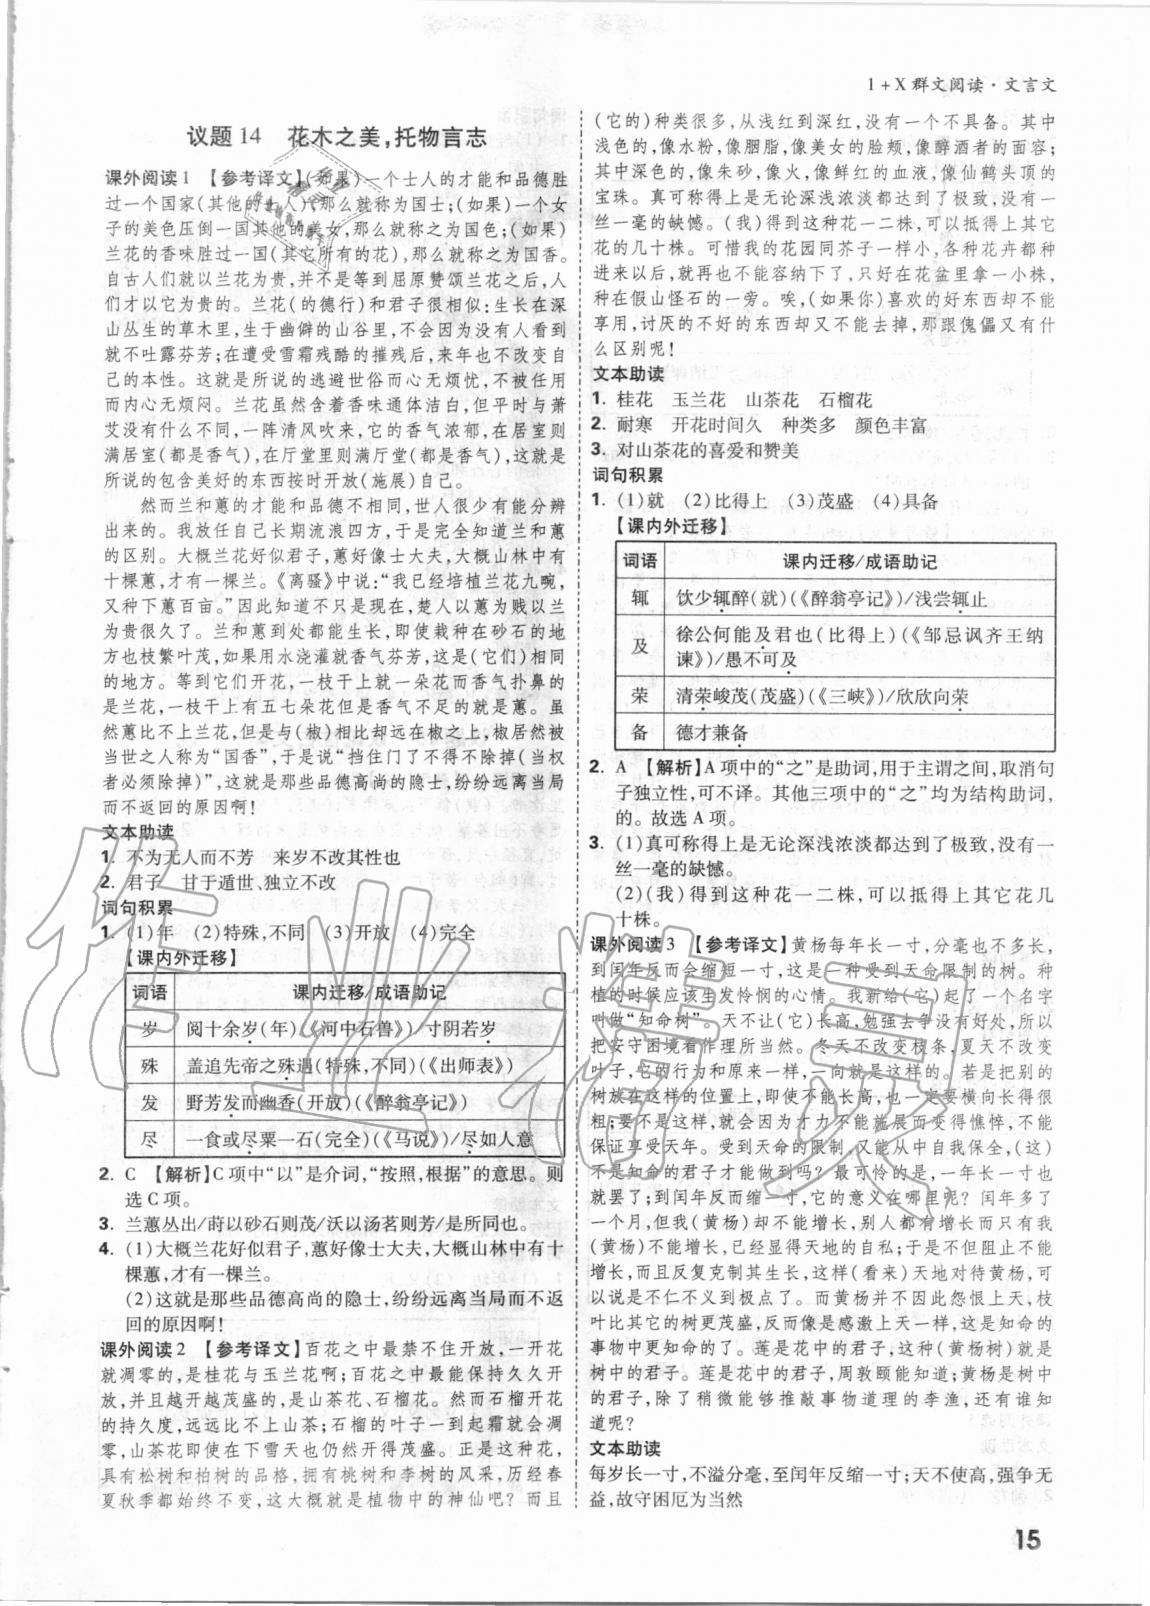 1+X群文阅读·文言文
议题14 花木之美,托物言志
课外阅读1 【参考译文】(如果)一个士人的才能和品德胜
过一个国家(其他的士人),那么就称为国士;(如果)一个女
子的美色压倒一国其他的美女,那么就称之为国色;(如果)
兰花的香味胜过一国(其它所有的花),那么就称之为国香。
自古人们就以兰花为贵,并不是等到屈原赞美兰花之后,人
们才以它为贵的。兰花(的德行)和君子很相似:生长在深
山丛生的草木里,生于幽僻的山谷里,不会因为没有人看到
就不吐露芬芳;在遭受雪霜残酷的摧残后,来年也不改变自
己的本性。这就是所说的逃避世俗而心无烦忧,不被任用
而内心无烦闷。兰花虽然含着香味通体洁白,但平时与萧
艾没有什么不同,一阵清风吹来,它的香气浓郁,在居室则
满居室(都是香气),在厅堂里则满厅堂(都是香气),这就是
所说的包含美好的东西按时开放(施展)自己。
然而兰和蕙的才能和品德不相同,世人很少有能分辨
出来的。我放任自己长期流浪四方,于是完全知道兰和蕙
的区别。大概兰花好似君子,蕙好像士大夫,大概山林中有
十棵蕙,才有一棵兰。《离骚》中说:“我已经培植兰花九畹,
又种下蕙百亩。”因此知道不只是现在,楚人以蕙为贱以兰
为贵很久了。兰和蕙到处都能生长,即使栽种在砂石的地
方也枝繁叶茂,如果用水浇灌就香气芬芳,这是(它们)相同
的地方。等到它们开花,一枝干上就一朵花而香气扑鼻的
是兰花,一枝干上有五七朵花但是香气不足的就是蕙。虽
然蕙比不上兰花,但是与(椒)相比却远在椒之上,椒居然被
当世之人称为“国香”,于是说“挡住门了不得不除掉(当权
者必须除掉)”,这就是那些品德高尚的隐士,纷纷远离当局
而不返回的原因啊!
文本助读
1. 不为无人而不芳 来岁不改其性也
2. 君子 甘于遁世、独立不改
词句积累
1. (1)年 (2)特殊,不同 (3)开放 (4)完全
【课内外迁移】
词语 课内迁移/成语助记
岁 阅十余岁(年)(《河中石兽》)/寸阴若岁
殊 盖追先帝之殊遇(特殊,不同)(《出师表》)
发 野芳发而幽香(开放)(《醉翁亭记》)
尽 一食或尽粟一石(完全)(《马说》)/尽如人意
2. C 【解析】C项中“以”是介词,“按照,根据”的意思。则
选C项。
3. 兰蕙丛出/莳以砂石则茂/沃以汤茗则芳/是所同也。
4. (1)大概兰花好似君子,蕙好像士大夫,大概山林中有十
棵蕙,才有一棵兰。
(2)这就是那些品德高尚的隐士,纷纷远离当局而不返
回的原因啊!
课外阅读2 【参考译文】百花之中最禁不住开放,一开花
就凋零的,是桂花与玉兰花啊;百花之中最能保持久久开
放,并且越开越茂盛的,是山茶花、石榴花。然而石榴开花
的持久度,远远比不上山茶;石榴的叶子一到起霜就会凋
零,山茶花即使在下雪天也仍然开得茂盛。正是这种花,
具有松树和柏树的品格,拥有桃树和李树的风采,历经春
夏秋季都始终不变,这大概就是植物中的神仙吧?而且
(它的)种类很多,从浅红到深红,没有一个不具备。其中
浅色的,像水粉,像胭脂,像美女的脸颊,像醉酒者的面容;
其中深色的,像朱砂,像火,像鲜红的血液,像仙鹤头顶的
宝珠。真可称得上是无论深浅浓淡都达到了极致,没有一
丝一毫的缺憾。(我)得到这种花一二株,可以抵得上其它
花的几十株。可惜我的花园同芥子一样小,各种花卉都种
进来以后,就再也不能容纳下了,只好在花盆里单一小株,
种在假山怪石的一旁。唉,(如果你)喜欢的好东西却不能
享用,讨厌的不好的东西却又不能去掉,那跟傀儡又有什
么区别呢!
文本助读
1. 桂花 玉兰花 山茶花 石榴花
2. 耐寒 开花时间久 种类多 颜色丰富
3. 对山茶花的喜爱和赞美
词句积累
1. (1)就 (2)比得上 (3)茂盛 (4)具备
【课内外迁移】
词语 课内迁移/成语助记
辄 饮少辄醉(就)(《醉翁亭记》)/浅尝辄止
及 徐公何能及君也(比得上)(《邹忌讽齐王纳
谏》)/愚不可及
荣 清荣峻茂(茂盛)(《三峡》)/欣欣向荣
备 德才兼备
2. A 【解析】A项中的“之”是助词,用于主谓之间,取消句
子独立性,可不译。其他三项中的“之”均为结构助词,
的。故选A项。
3. (1)真可称得上是无论深浅浓淡都达到了极致,没有一
丝一毫的缺憾。
(2)(我)得到这种花一二株,可以抵得上其它花几
十株。
课外阅读3 【参考译文】黄杨每年长一寸,分毫也不多长,
到闰年反而会缩短一寸,这是一种受到天命限制的树。种
植的时候应该生发怜悯的心情。我新给(它)起了一个名字
叫做“知命树”。天不让(它)长高,勉强去争没有好处,所以
把安守困境看作理所当然。冬天不改变枝条,夏天不改变
叶子,它的行为和原来一样,一向就是这样的。若是把别的
树放在这样的位置上,即使不能变高,一定要横向长得很
粗;要不是这样,就会因为才能不能施展而变得憔悴,不能
保证享受天年。受到天命的限制,又能从中自我保全,(这)
不是知命的君子才能做到吗?最可怜的是,一年长一寸也
就是了;到闰年反而缩一寸,它的意义在哪里呢?闰年多了
一个月,但我(黄杨)却不能增长,别人都有增长我(黄杨)
(黄杨)不能增长,已经显得天地的自私;于是不但阻止不能
增长,而且反复克制其生长,这样(看来)天地对待黄杨,可
以说是不仁不义到极点了。而黄杨并不因此怨恨上天,枝
叶比其它的树更茂盛,反而像是感激似的,这是知命的
事物中更知命的了。莲是花中的君子,这(黄杨树)是树中
的君子。莲是花中的君子,周敦颐知道;黄杨是树中
的君子,除了稍微能够推敲事物道理的李渔,还有谁知
道呢?
文本助读
每岁长一寸,不溢分毫,至闰年反缩一寸;天不使高,强争无
益,故守困厄为当然
15